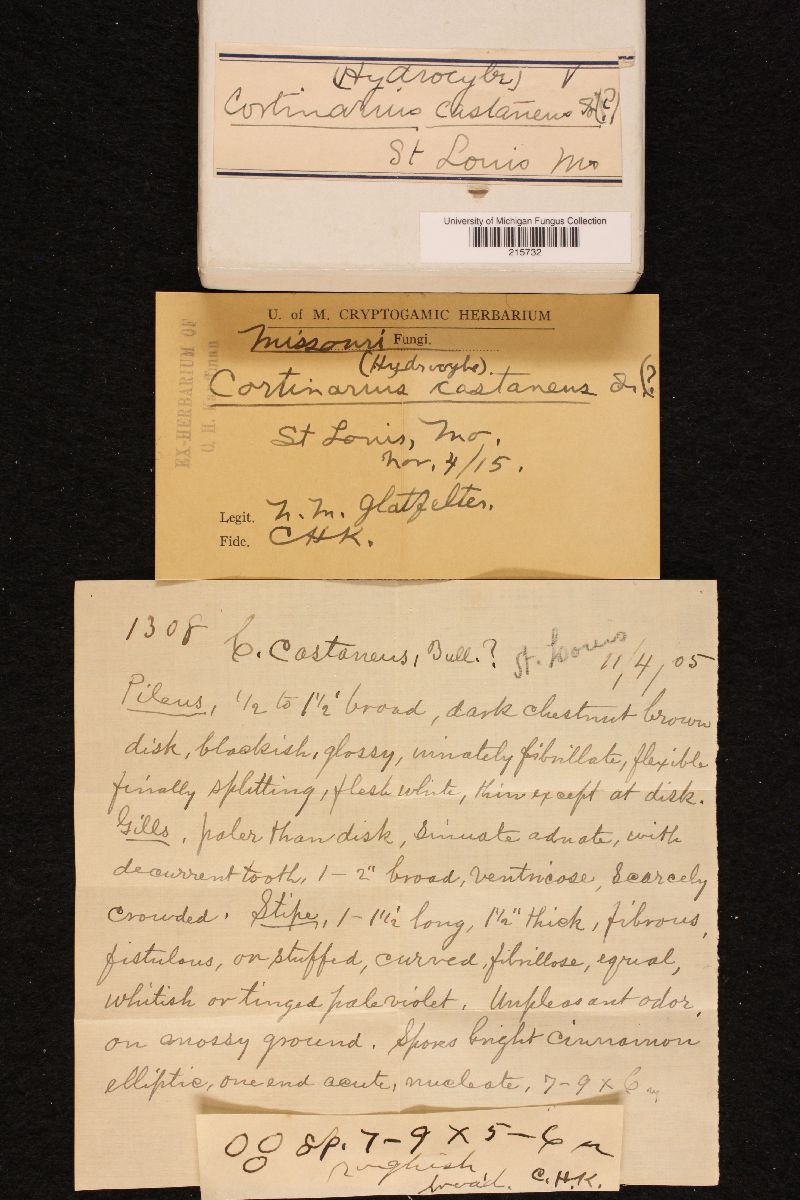 (Hydrocybe) √
Cortinarius castaneus (?)
St Louis Mo
University of Michigan Fungus Collection
215732
U. of M. CRYPTOGAMIC HERBARIUM
Missouri Fungi.
(Hydrocybe).
Cortinarius castaneus (?
St Louis, Mo.
Nov. 4/15.
Legit. N. M. Glatfelter.
Fide. CHK.
EX-HERBARIUM OF
C. H. Kauffman
1308
C. Castaneus, Bull.? St. Louis 11/4/05
Pileus, 1/2 to 1 1/2' broad, dark chestnut brown
disk, blackish, glossy, innately fibrillate, flexible
finally splitting, flesh white, thin except at disk.
Gills, paler than disk, sinuate adnate, with
decurrent tooth, 1-2" broad, ventricose, scarcely
crowded. Stipe, 1-1 1/2' long, 1 1/2" thick, fibrous,
fistulous, or stuffed, curved, fibrillose, equal,
whitish or tinged pale violet. Unpleasant odor,
on mossy ground. Spores bright cinnamon
elliptic, one end acute, nucleate, 7-9 x 6
sp. 7-9 x 5-6 µ
roughish
broad. C.H.K.